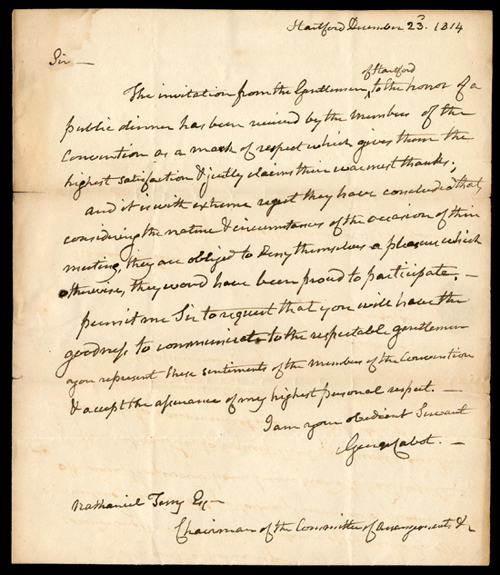 Hartford December 23d. 1814
Sir —
of Hartford
The invitation from the Gentlemen ^ to the honor of a
public dinner has been received by the members of the
Convention as a mark of respect which gives them the
highest satisfaction & justly claims their warmest thanks;
and it is with extreme regret they have concluded that
considering the nature & circumstances of the occasion of their
meeting, they are obliged to deny themselves a pleasure which
otherwise, they would have been proud to participate. —
permit me Sir to request that you will have the
goodness to communicate to the respectable gentlemen
you represent these sentiments of the members of the Convention
& accept the assurance of my highest personal respect. —
I am your obedient Servant
George Cabot. —
Nathaniel Terry Esq —
Chairman of the Committee of arrangements &c